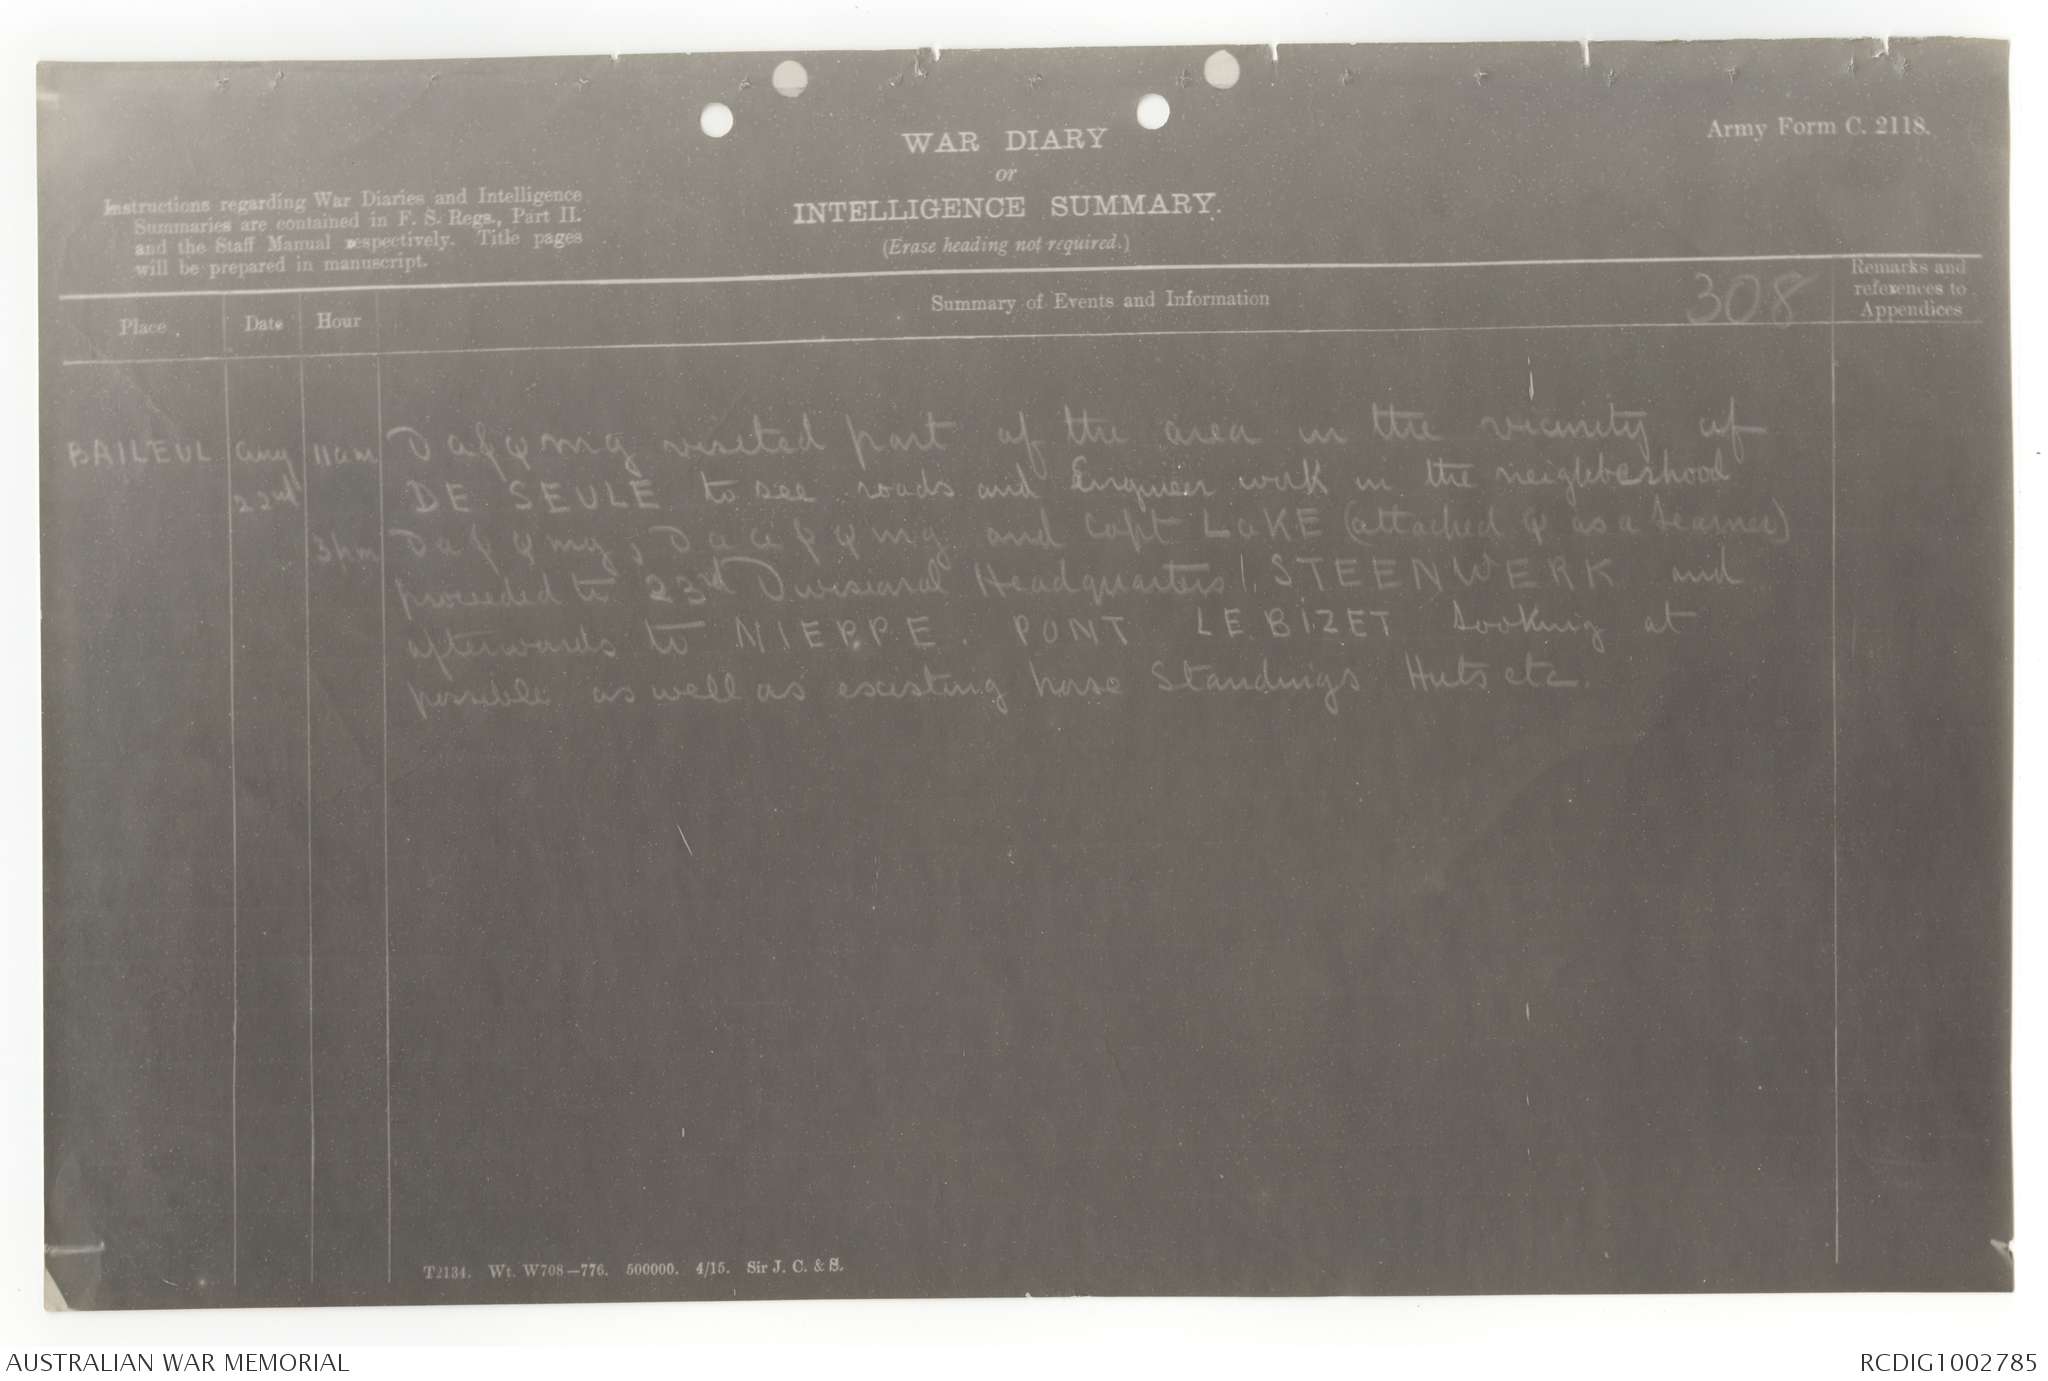 Army Form C. 2118.
WAR DIARY
or
INTELLIGENCE SUMMARY.
(Erase heading not required.)
Instructions regarding War Diaries and Intelligence
Summaries are contained in F. S. Regs., Part II.
and the Staff Manual respectively. Title pages
will be prepared in manuscript.
Place Date Hour Summary of Events and Information 308 Remarks and
references to
Appendices
BAILEUL Aug 11am D a & Q m g visited part of the area in the vicinity of
22nd DE SEULE to see roads and Engineer work in the neighborhood
3pm D a & Q m g, D a a & Q m g and Capt LAKE (attached Q as a learner)
proceeded to 23rd Divisional Headquarters, STEENWERK and
afterwards to NIEPPE. PONT LE BIZET looking at
possible as well as existing horse standings Huts etc.
T2134. Wt. W708—776. 500000. 4/15. Sir J. C. & S.
AUSTRALIAN WAR MEMORIAL
RCDIG1002785